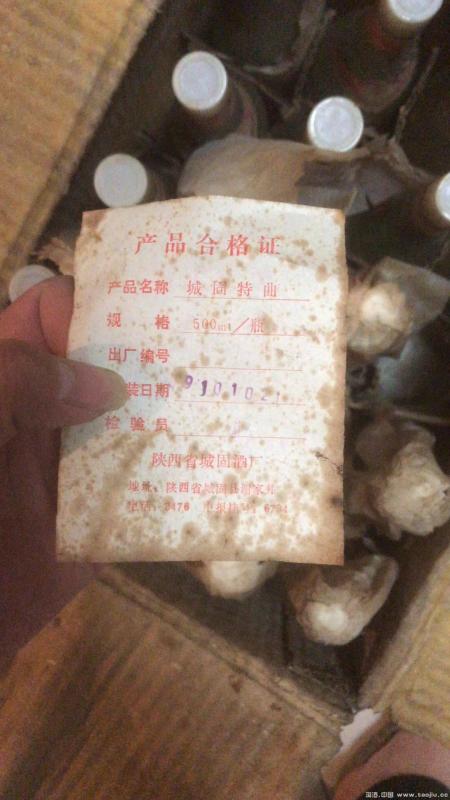 产品合格证
产品名称 城固特曲
规 格 500ml/瓶
出厂编号
装日期 9101021
检验员
陕西省城固酒厂
地址：陕西省城固县
电话：2476
淘酒.中国 www.taojiu.cc